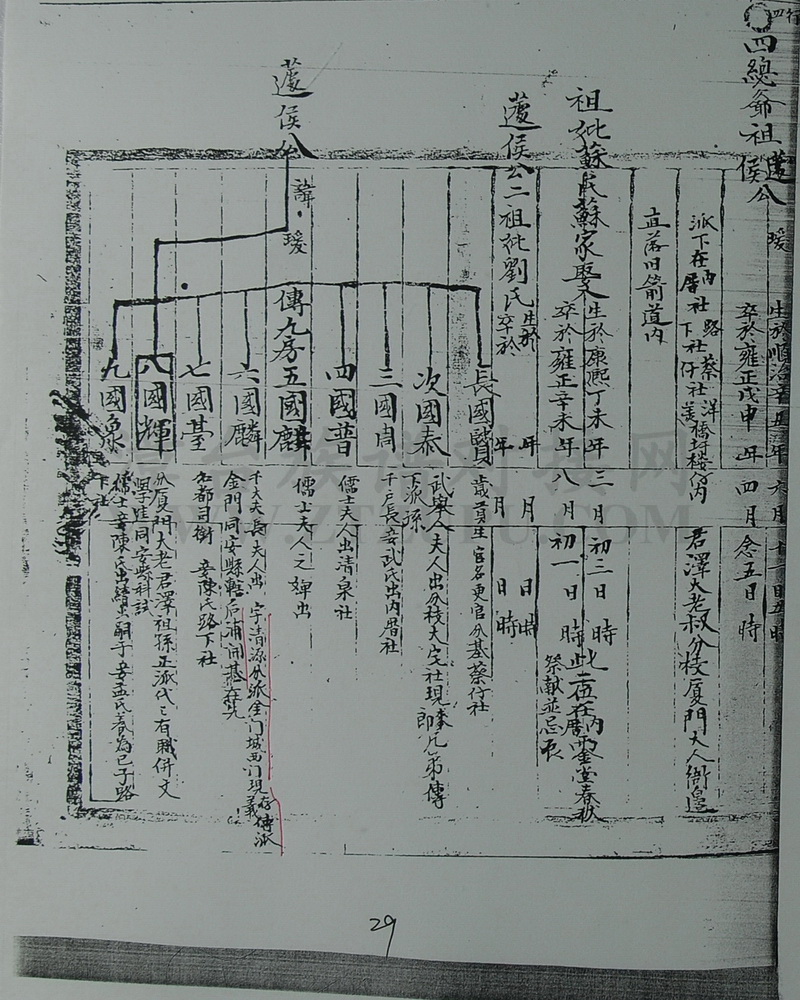 四行
四總爺祖蘧侯公
瑗
生於順治辛丑年六月十二日五時
卒於雍正戊申年四月念五日時
派下在內厝社路下社蔡仔社洋橋圩
君澤大老叔分枝厦門大人衙邊
直落旧箭道內
祖妣蘇氏蘇家娶
生於康熙丁未年三月初三日時
卒於雍正辛未年八月初一日時
此二伍在內厝霱堂春秋
祭献並忌辰
蘧侯公二祖妣劉氏
生於年月日時
卒於年月日時
蘧侯公
諱瑗
傳九房
長國賢
歲貢生官名東官分基蔡仔社
次國泰
武舉人夫人出分枝大宅社現奉兄弟傳
下派孫
三國周
千戶長妾武氏出內厝社
四國普
儒士夫人出清泉社
五國麒
儒士夫人之婢出
六國麟
千夫長夫人出字清源分派金门城西门現存傳派
金門同安縣轄后浦開基
七國臺
名都司銜妾陳氏路下社
八國輝
分厦門大老君澤祖孫正派代々有職併文
學進同安縣科試
九國泉
儒士妾陳氏出嗣子妾孟氏養為己子路
下社
29